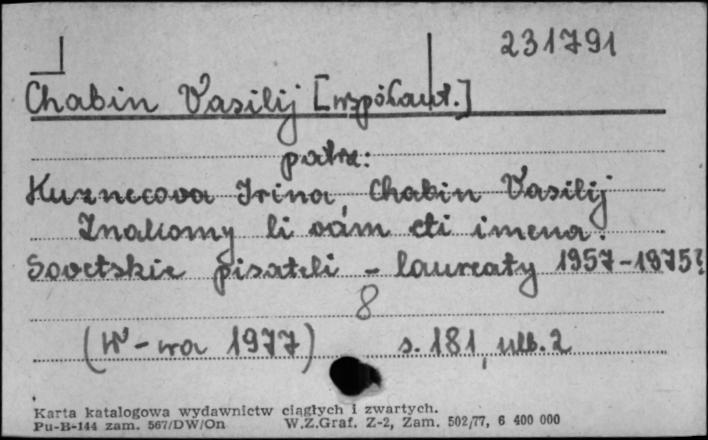 231791
Chabin Vasilij [współaut.]
patrz:
Kuznecova Irina, Chabin Vasilij
Znakomy li vám eti imena:
Sovetskie pisateli - laureaty 1957-1975?
8
(W-wa 1977) s. 181, nlb. 2
Karta katalogowa wydawnictw ciągłych i zwartych.
Pu-B-144 zam. 567/DW/On W.Z.Graf. Z-2, Zam. 502/77, 6 400 000